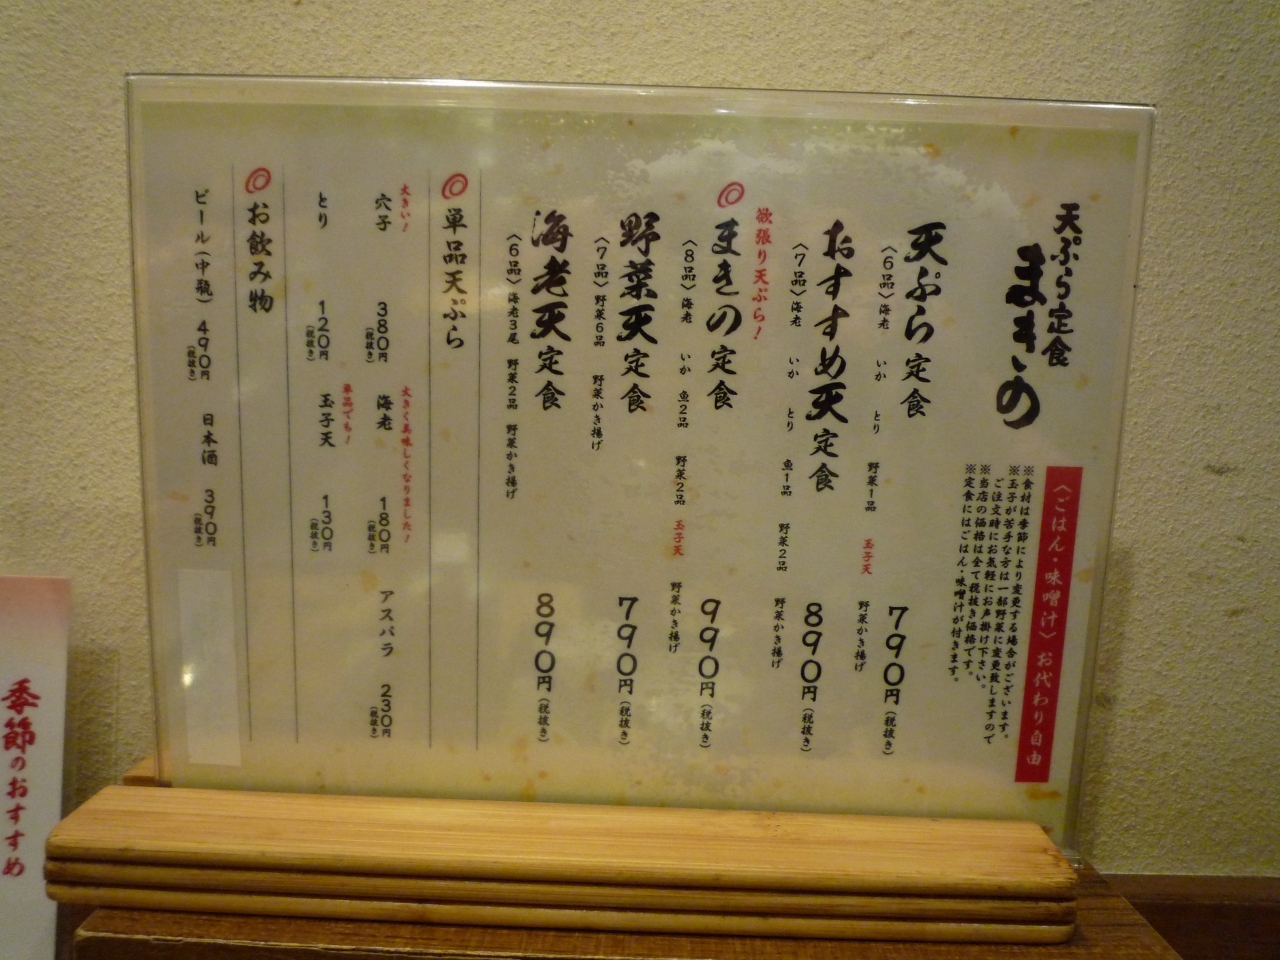 天ぷら定食
まきの
〈ごはん・味噌汁〉お代わり自由
※食材は季節により変更する場合がございます。
※玉子が苦手な方は一部野菜に変更致しますので
ご注文時にお気軽にお声掛け下さい。
※当店の価格は全て税抜き価格です。
※定食にはごはん・味噌汁が付きます。
天ぷら定食 790円(税抜き)
〈6品〉海老 いか とり 野菜1品 玉子天 野菜かき揚げ
おすすめ天定食 890円(税抜き)
〈7品〉海老 いか とり 魚1品 野菜2品 野菜かき揚げ
欲張り天ぷら!
まきの定食 990円(税抜き)
〈8品〉海老 いか 魚2品 野菜2品 玉子天 野菜かき揚げ
野菜天定食 790円(税抜き)
〈7品〉野菜6品 野菜かき揚げ
海老天定食 890円(税抜き)
〈6品〉海老3尾 野菜2品 野菜かき揚げ
単品天ぷら
大きい!
穴子 380円(税抜き)
大きく美味しくなりました!
海老 180円(税抜き)
アスパラ 230円(税抜き)
とり 120円(税抜き)
単品でも!
玉子天 130円(税抜き)
お飲み物
ビール(中瓶) 490円(税抜き)
日本酒 390円(税抜き)
季節のおすすめ